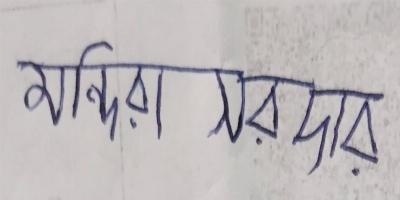 মন্দিরা সরদার